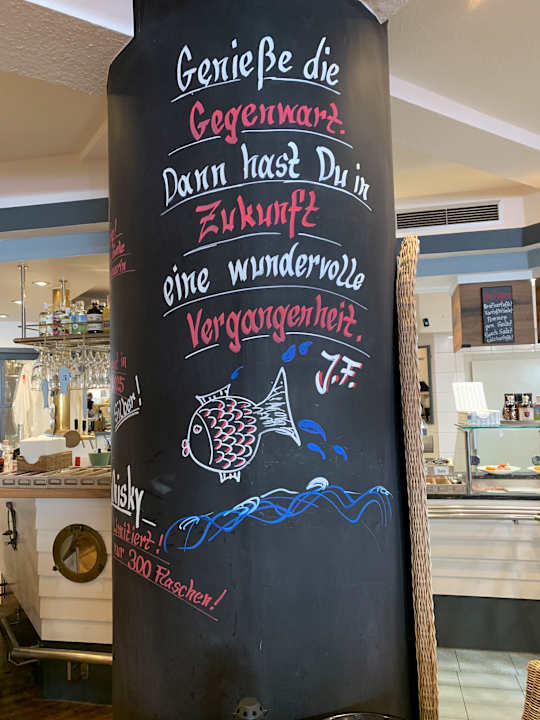 Genieße die
Gegenwart.
Dann hast Du in
Zukunft
eine wundervolle
Vergangenheit.
J.F.
Whisky
Limitiert!
nur 300 Flaschen!